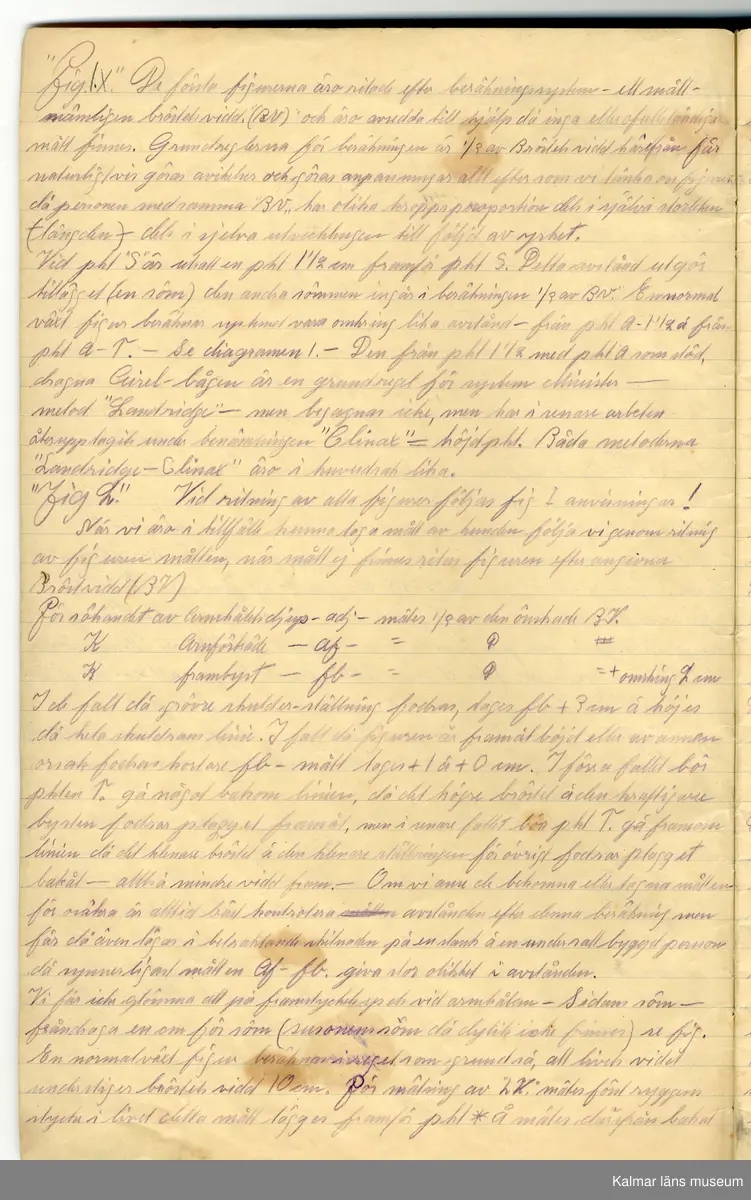 "Fig. I.X." De första figurerna äro ritade efter beräkningssystem - ett mått -
nämligen bröstets vidd, (BV) och äro avsedda till hjälp då inga eller ofullständiga
mått finnes. Grundreglerna för beräkningen är 1/2 av Bröstets vidd härefrån får
naturligtvis göras avikelser och göras anpassningar allt efter som vi tänka oss figuren
då personen med samma BV., har olika kroppsproportion dels i själva storleken
(längden) - dels i sjelva utvecklingen till följd av yrket.
Vid pkt "S" är utsatt en pkt 1 1/2 cm framför pkt S. Detta avstånd utgör
tillägget (en söm) den andra sömmen ingår i beräkningen 1/2 av BV." En normal
växt figur beräknas ryckmed vara omkring lika avstånd - från pkt A-1 1/2 å från
pkt A - T. - Se diagramen 1. - Den från pkt 1 1/2 med pkt A som stöd,
dragna Cirel-bågen är en grundregel för system
metod "Landridge" - men begagnas icke, men har i senare arbeten
återupptagits under benämningen "Climax" = höjdpkt. Båda metoderna
"Landridge - Climax" äro i huvudsak lika.
"Fig 2." Vid ritning av alla figurer följas fig I anvisningar!
När vi äro i tillfälle kunna taga mått av kunden följa vi genom ritning
av figuren måtten, när mått ej finnes ritas figuren efter angivna
Bröstvidd (BV)
För sökandet av Ärmhålets djup - adj - mätes 1/2 av den önskade B.V.
K Armförbåde - af - = P #
K frambyst - fb - = P = + omkring 2 cm
I de fall då grövre skulder-ställning fodras, tages fb + 3 cm å höjes
då hela skuldrans linie. I fall då figuren är framåt böjd eller av annan
orsak fodras kortare fb - mått tages +1 à +0 cm. I förra fallet bör
pkten T. gå något bakom linien, då det högre bröstet å den kraftigare
bysten fodrar plagget framåt, men i senare fallet bör pkt T. gå framom
linien då det klenare bröstet å den klenare ställningen för övrigt fodrar plagget
bakåt - alltså mindre vidd fram. - Om vi anse de bekomna eller tagna måtten
för osäkra är alltid bäst kontrolera avstånden efter denna beräkning men
får då även tagas i betraktande skilnaden på en slank å en undersatt byggd person
då synnerligast måtten Af - fb. giva stor olikhet i avstånden.
Vi får icke glömma att på framstyckets spets vid armhålan - Sidans söm -
fråndraga en cm för söm (sursonensöm då dylik icke finnes) se fig.
En normalväxt figur beräknas i regel som grundså, att livets vidd
understiger bröstets vidd 10 cm. För mätning av LV." mätes först ryggens
stycke i livet detta mått lägges framför pkt * Å mätes därefrån bakåt
Kalmar läns museum